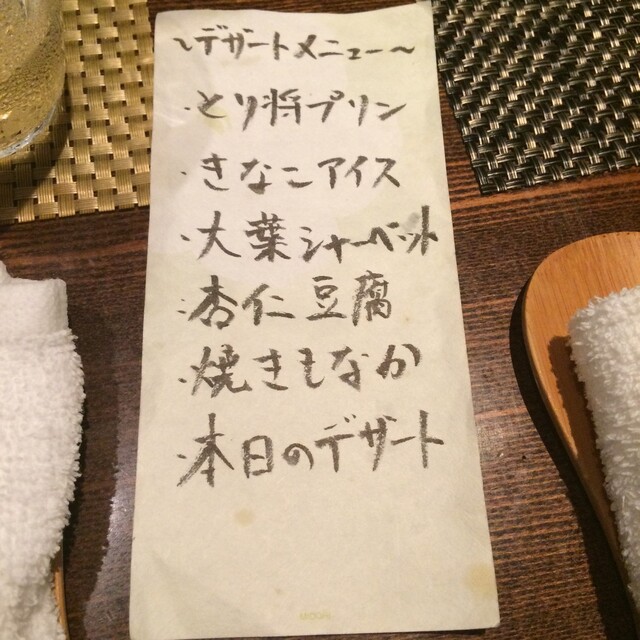 ~デザートメニュー~
・とり将プリン
・きなこアイス
・大葉シャーベット
・杏仁豆腐
・焼きもなか
・本日のデザート